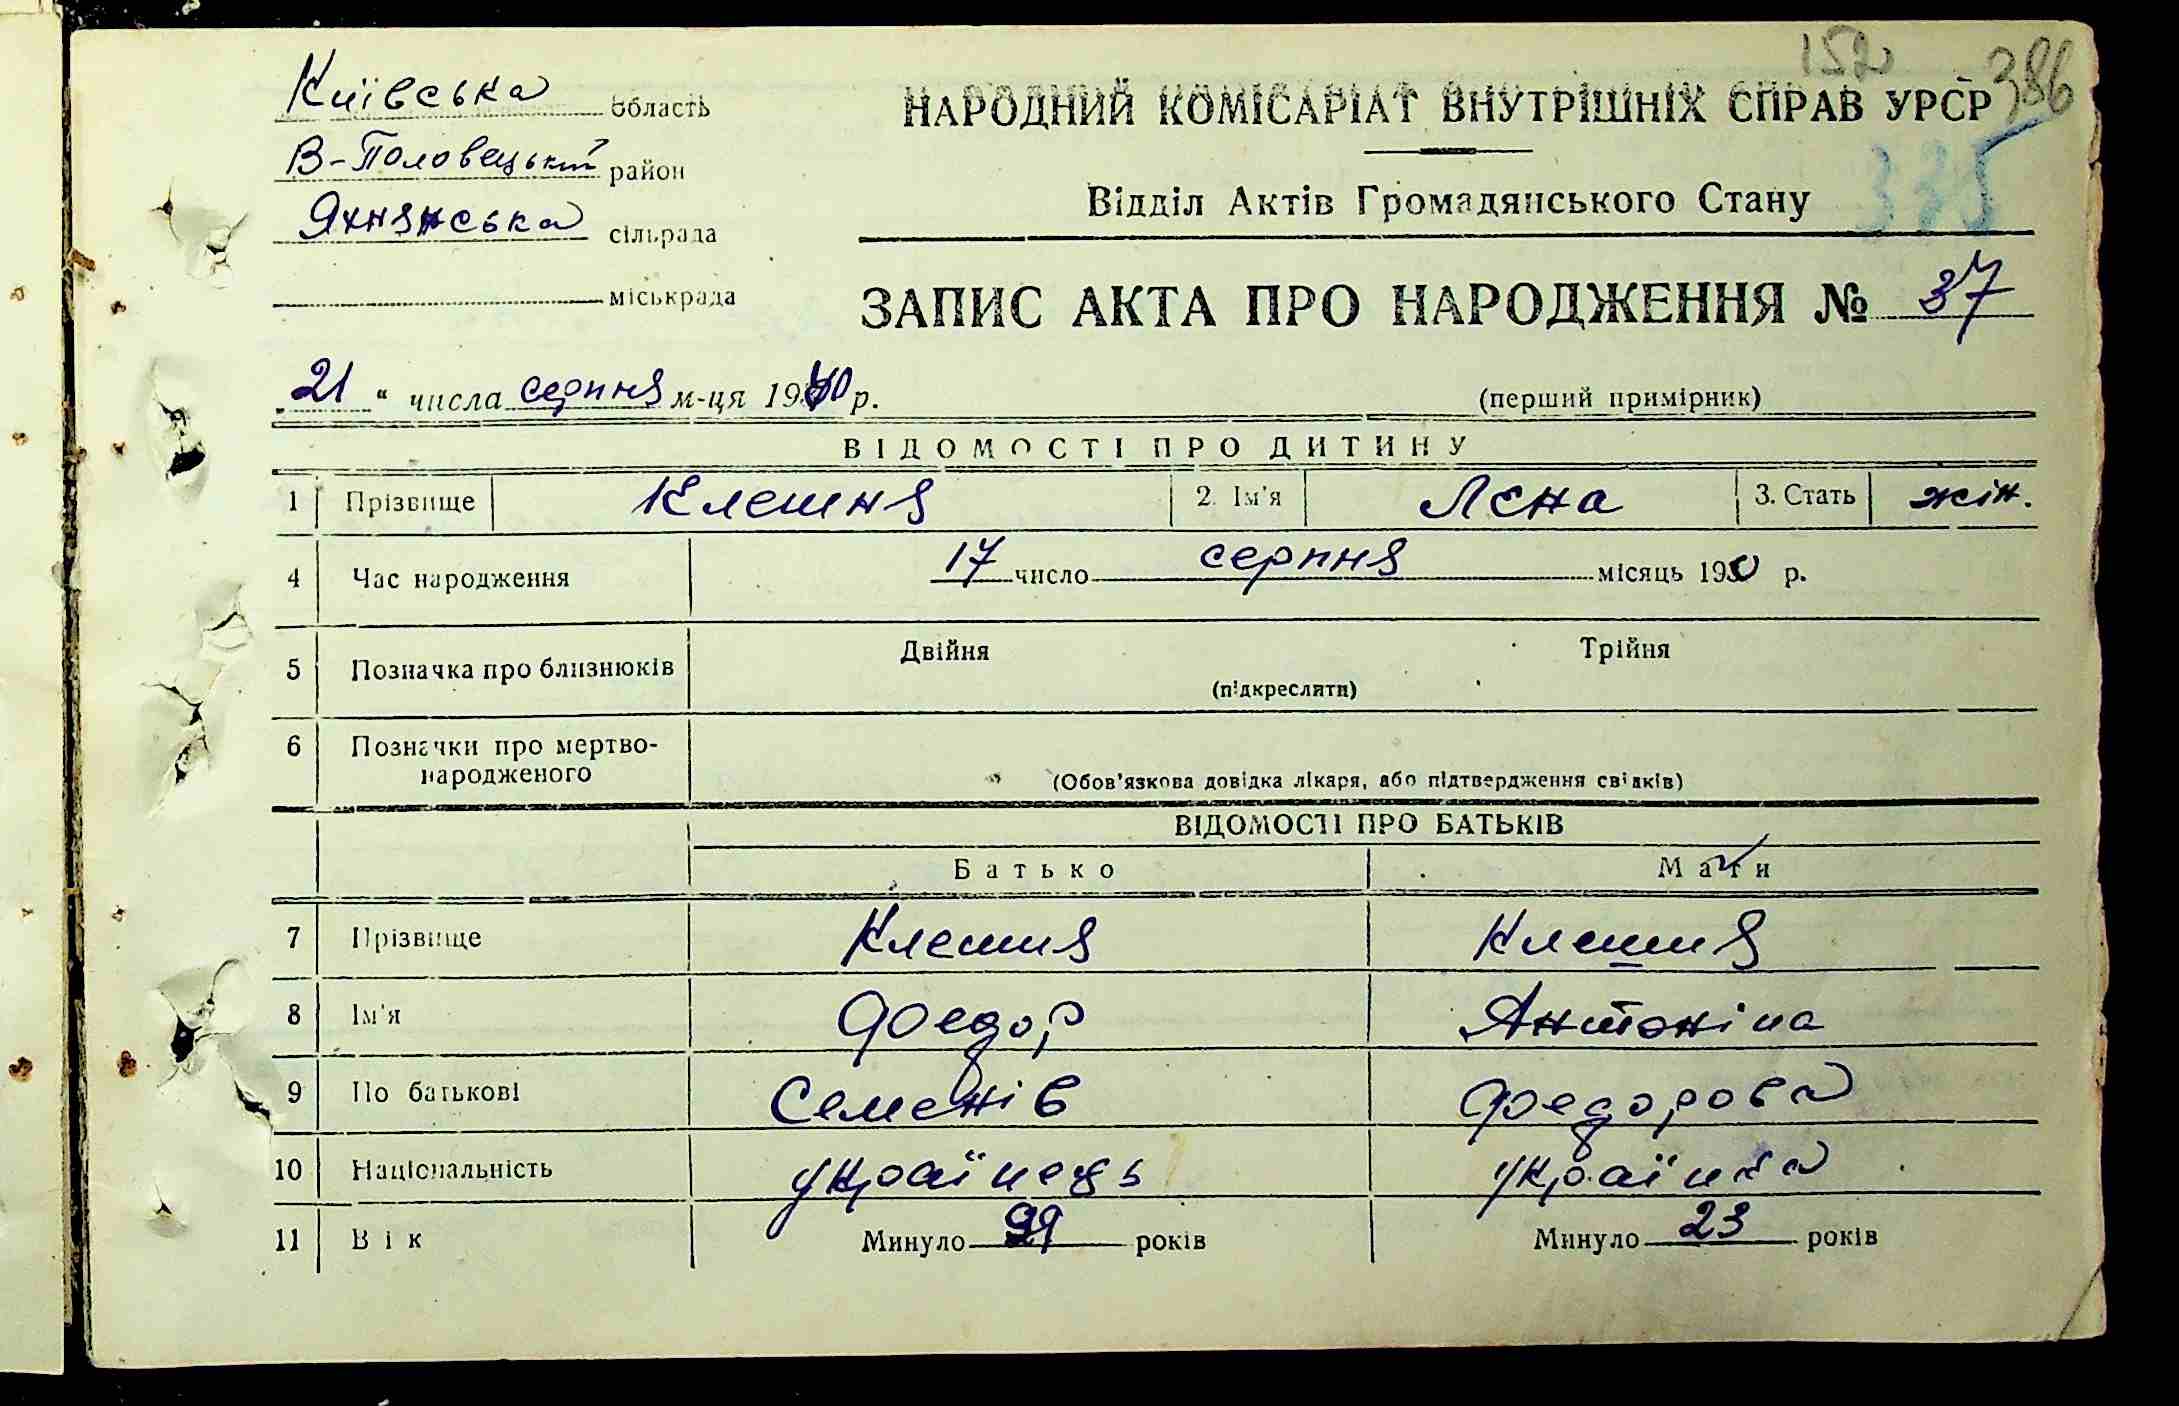 152 386
Київська область НАРОДНИЙ КОМІСАРІАТ ВНУТРІШНІХ СПРАВ УРСР
В-Половецький район
335
Яхнянська сільрада Відділ Актів Громадянського Стану
міськрада ЗАПИС АКТА ПРО НАРОДЖЕННЯ № 37
„21“ числа серпня м-ця 1940 р. (перший примірник)
ВІДОМОСТІ ПРО ДИТИНУ
1 Прізвище Клешня 2. Ім'я Лєна 3. Стать жін.
4 Час народження 17 число серпня місяць 1930 р.
5 Позначка про близнюків Двійня Трійня
(підкреслити)
6 Позначки про мертво-
народженого (Обов'язкова довідка лікаря, або підтвердження свідків)
ВІДОМОСТІ ПРО БАТЬКІВ
Батько Мати
7 Прізвище Клешня Клешня
8 Ім'я Федор Антоніна
9 По батькові Семенів Федорова
10 Національність українець українка
11 Вік Минуло років Минуло 23 років